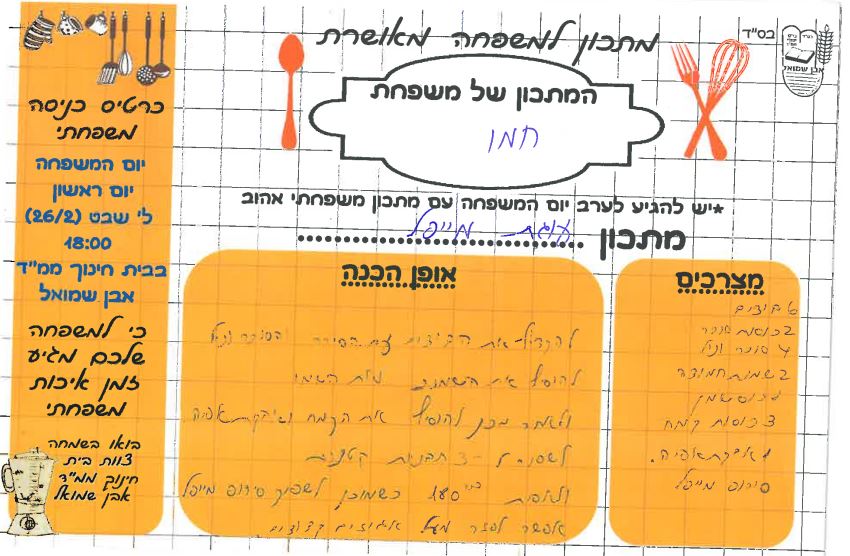 בס"ד
אבן שמואל
מתכון למשפחה מאושרת
המתכון של משפחת
חמו
*יש להגיע לערב יום המשפחה עם מתכון משפחתי אהוב
מתכון עוגת מייפל
מצרכים
6 ביצים
2 כוסות סוכר
סוכר וניל
שמן
3 כוסות קמח
אבקת אפיה.
סירופ מייפל
אופן הכנה
להקציף את הביצים עם הסוכר והסוכר וניל
להוסיף את השמנת
ולאחר מכן להוסיף את הקמח ואבקת אפיה
לשפוך ל-3 תבניות קטנות
ולאפות 180 כשמוכן לשפוך סירופ מייפל
אפשר לפזר מעל אגוזים קצוצים
כרטיס כניסה
משפחתי
יום המשפחה
יום ראשון
ל' שבט (26/2)
18:00
בבית חינוך ממ"ד
אבן שמואל
כי למשפחה
שלכם מגיע
זמן איכות
משפחתי
בואו בשמחה
צוות בית
חינוך ממ"ד
אבן שמואל